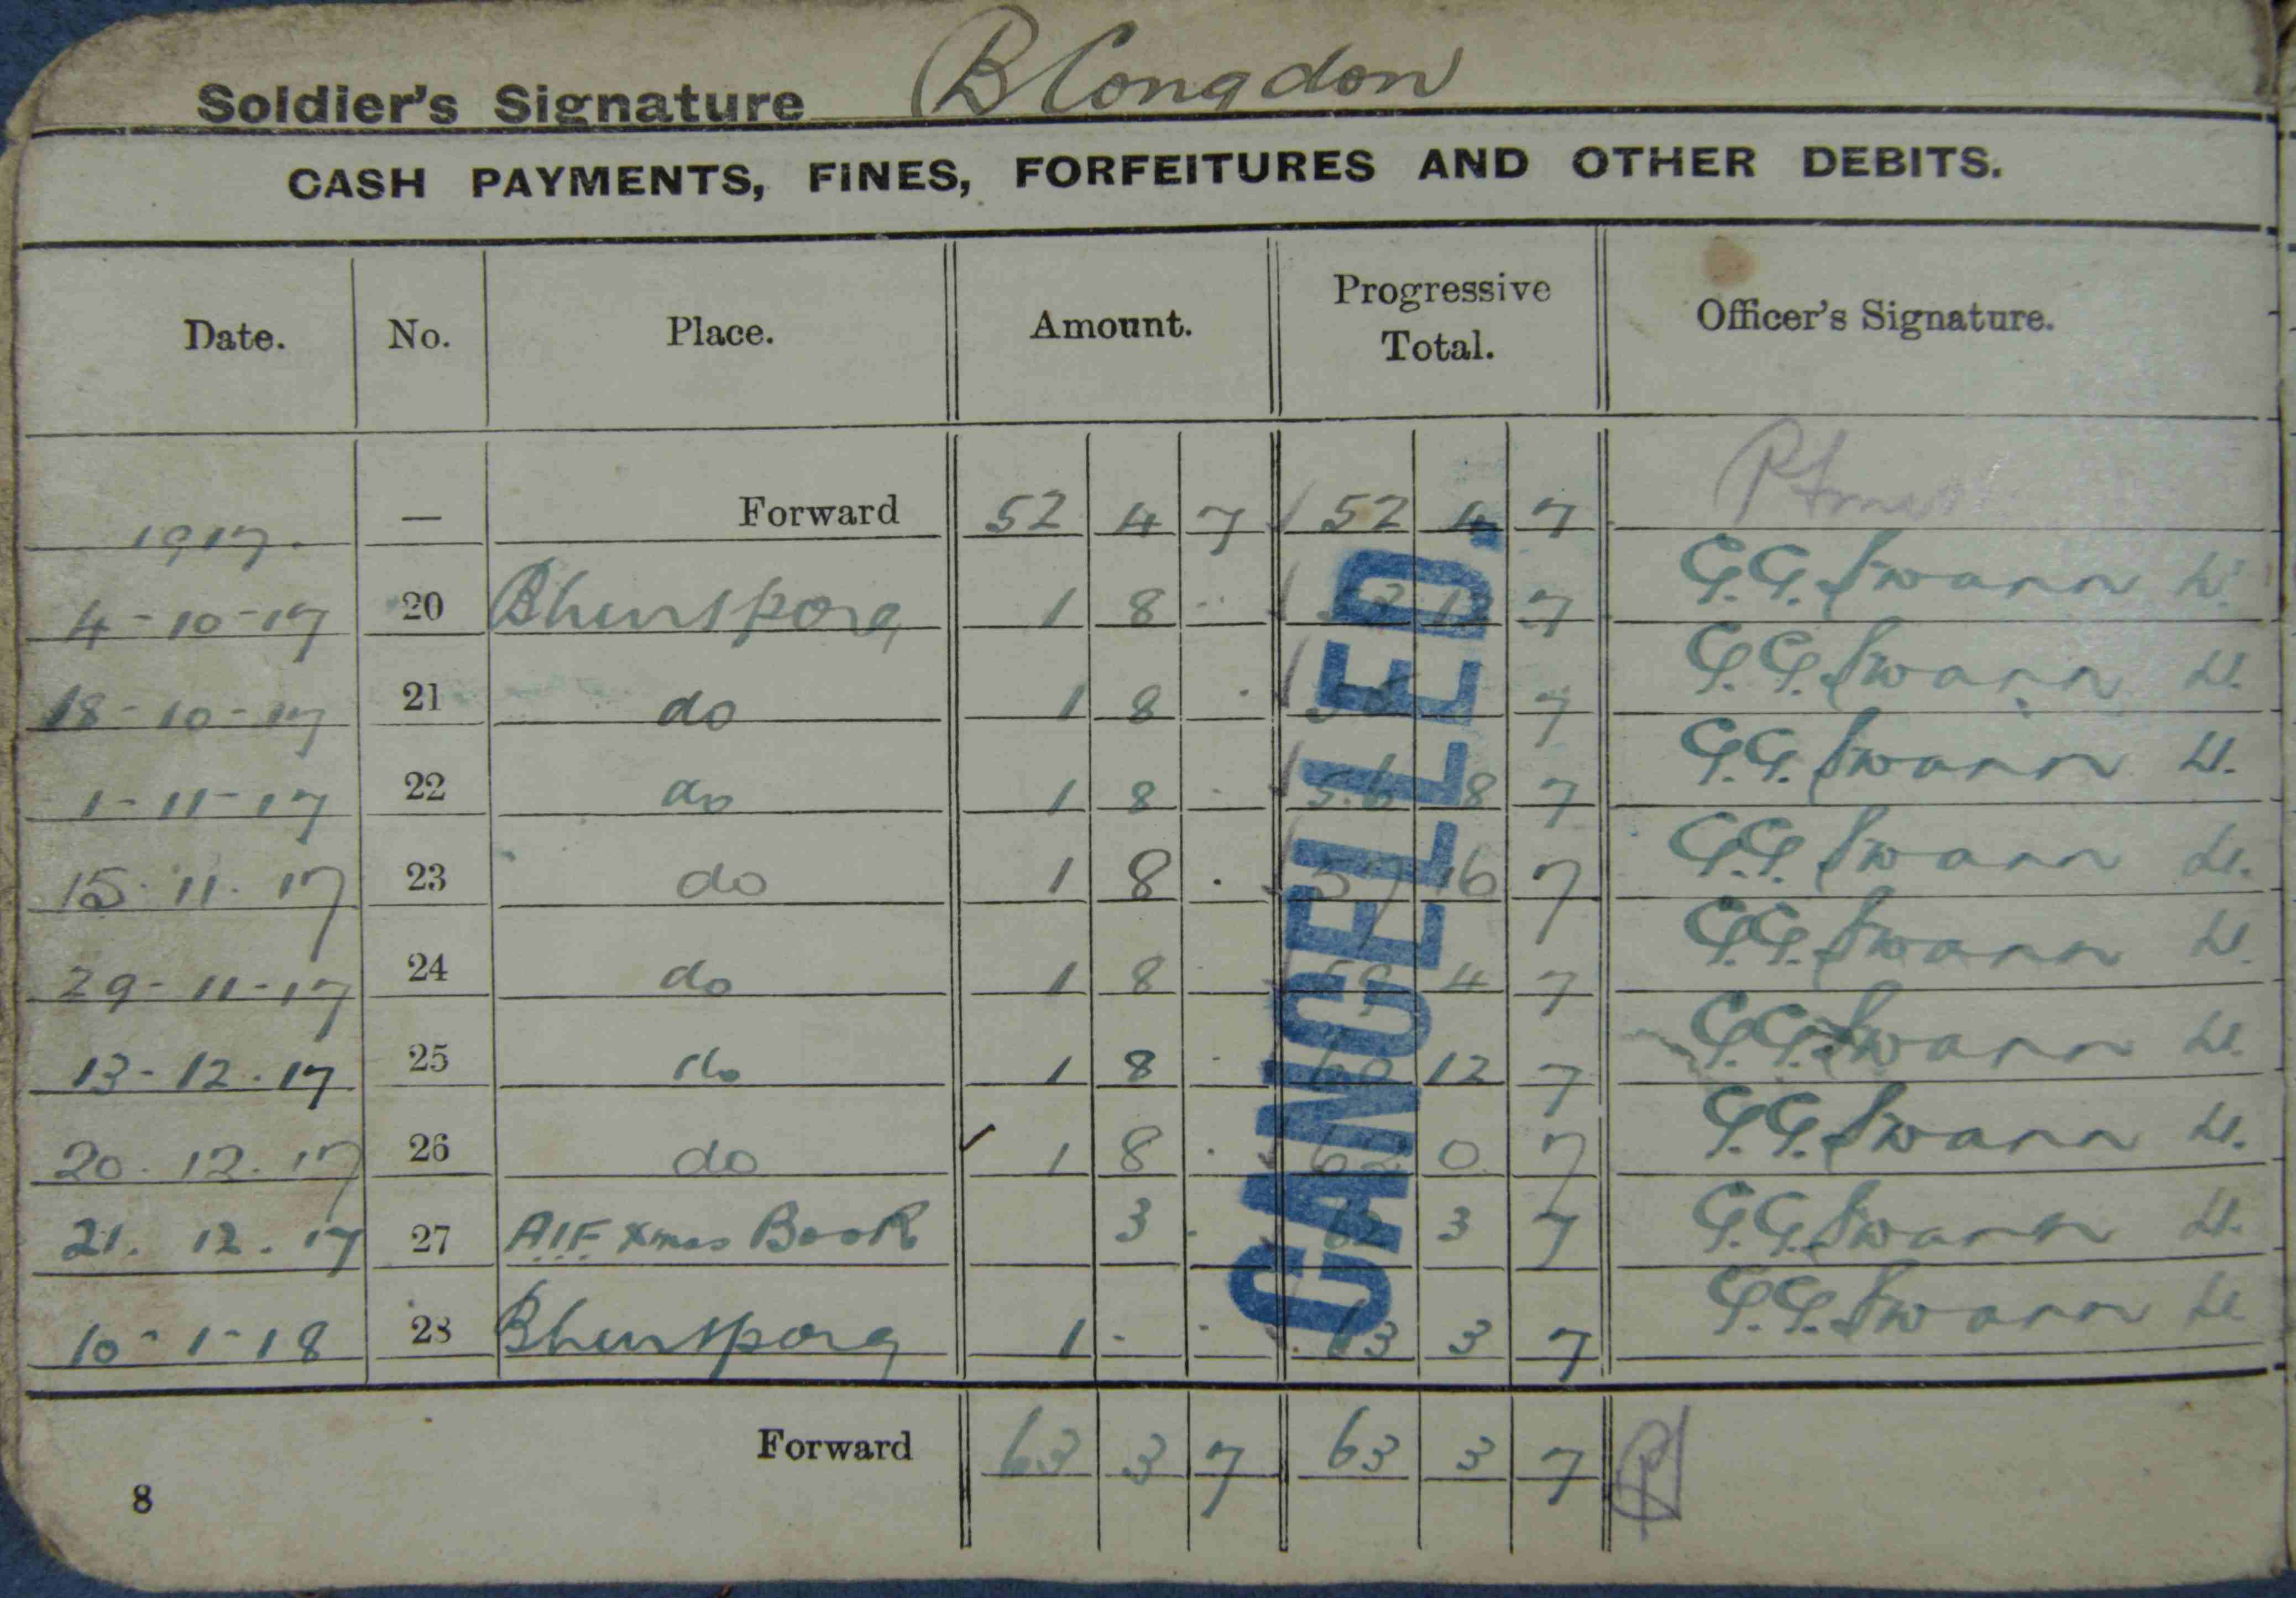 Soldier's Signature B Congdon
CASH PAYMENTS, FINES, FORFEITURES AND OTHER DEBITS.
Date. No. Place. Amount. Progressive Total. Officer's Signature.
1917. — Forward 52 4 7 52 4 7
4-10-17 20 Bhurtpore 1 8 - 53 12 7 G.G. Swann Lt.
18-10-17 21 do 1 8 - 7 G.G. Swann Lt.
1-11-17 22 do 1 8 - 56 8 7 G.G. Swann Lt.
15.11.17 23 do 1 8 . 57 16 7 G.G. Swann Lt.
29-11-17 24 do 1 8 59 4 7 G.G. Swann Lt.
13-12-17 25 do 1 8 - 60 12 7 G.G. Swann Lt.
20.12.17 26 do 1 8 . 62 0 7 G.G. Swann Lt.
21.12.17 27 AIF Xmas Book 3 - 62 3 7 G.G. Swann Lt.
10-1-18 28 Bhurtpore 1 - - 63 3 7 G.G. Swann Lt
Forward 63 3 7 63 3 7
8
CANCELLED.